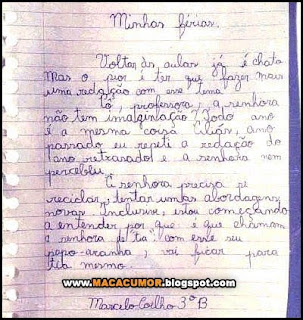 Minhas férias.
Voltar às aulas já é chato
Mas o pior é ter que fazer mais
uma redação com esse tema
Pô, professora, a senhora
não tem imaginação? Todo ano
é a mesma coisa. Aliás, ano
passado eu repeti a redação do
ano retrasado e a senhora nem
percebeu.
A senhora precisa se
reciclar, tentar umas abordagens
novas. Inclusive, estou começando
a entender por que é que chamam
a senhora de "tia". Com esse seu
papo-aranha, vai ficar para
tia mesmo.
WWW.MACACUMOR.blogspot.com
Marcelo Coelho 3º B